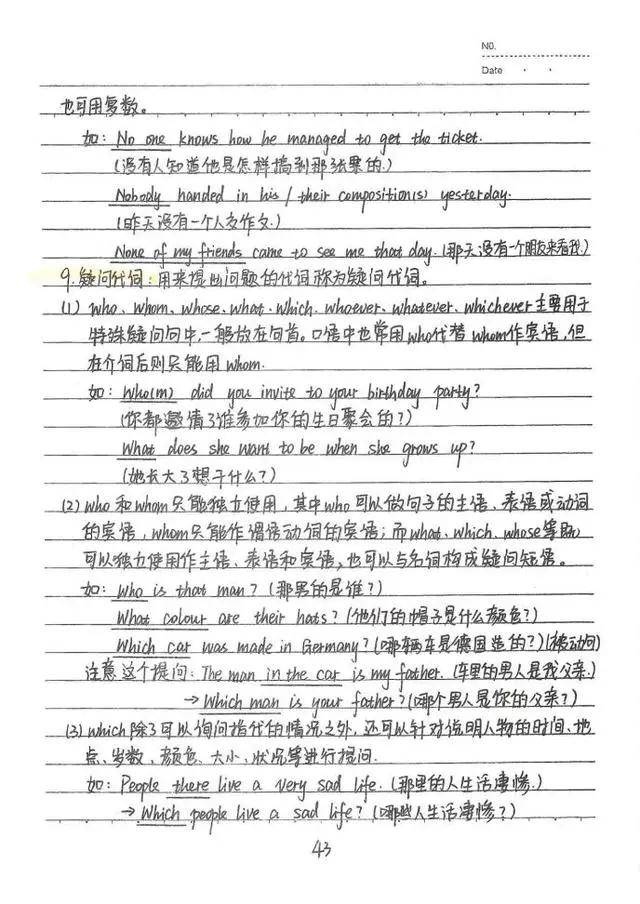 NO.
Date
也可用复数。
如: No one knows how he managed to get the ticket.
(没有人知道他是怎样搞到那张票的.)
Nobody handed in his/their composition(s) yesterday.
(昨天没有一个人交作文.)
None of my friends came to see me that day. (那天没有一个朋友来看我.)
9. 疑问代词: 用来提出问题的代词称为疑问代词。
(1) who、whom、whose、what、which、whoever、whatever、whichever主要用于
特殊疑问句中,一般放在句首。口语中也常用who代替whom作宾语,但
在介词后则只能用whom.
如: Who(m) did you invite to your birthday party?
(你都邀请了谁参加你的生日聚会的?)
What does she want to be when she grows up?
(她长大了想干什么?)
(2) who和whom只能独立使用,其中who可以做句子的主语、表语或动词
的宾语,whom只能作谓语动词的宾语;而what、which、whose等既
可以独立使用作主语、表语和宾语,也可以与名词构成疑问短语。
如: Who is that man? (那男的是谁?)
What colour are their hats? (他们的帽子是什么颜色?)
Which car was made in Germany? (哪辆车是德国造的?)(被动问)
注意这个提问: The man in the car is my father. (车里的男人是我父亲.)
→ Which man is your father? (哪个男人是你的父亲?)
(3) which除了可以询问指代的情况之外,还可以针对说明人物的时间、地
点、岁数、颜色、大小、状况等进行提问.
如: People there live a very sad life. (那里的人生活凄惨.)
→ Which people live a sad life? (哪些人生活凄惨?)
43